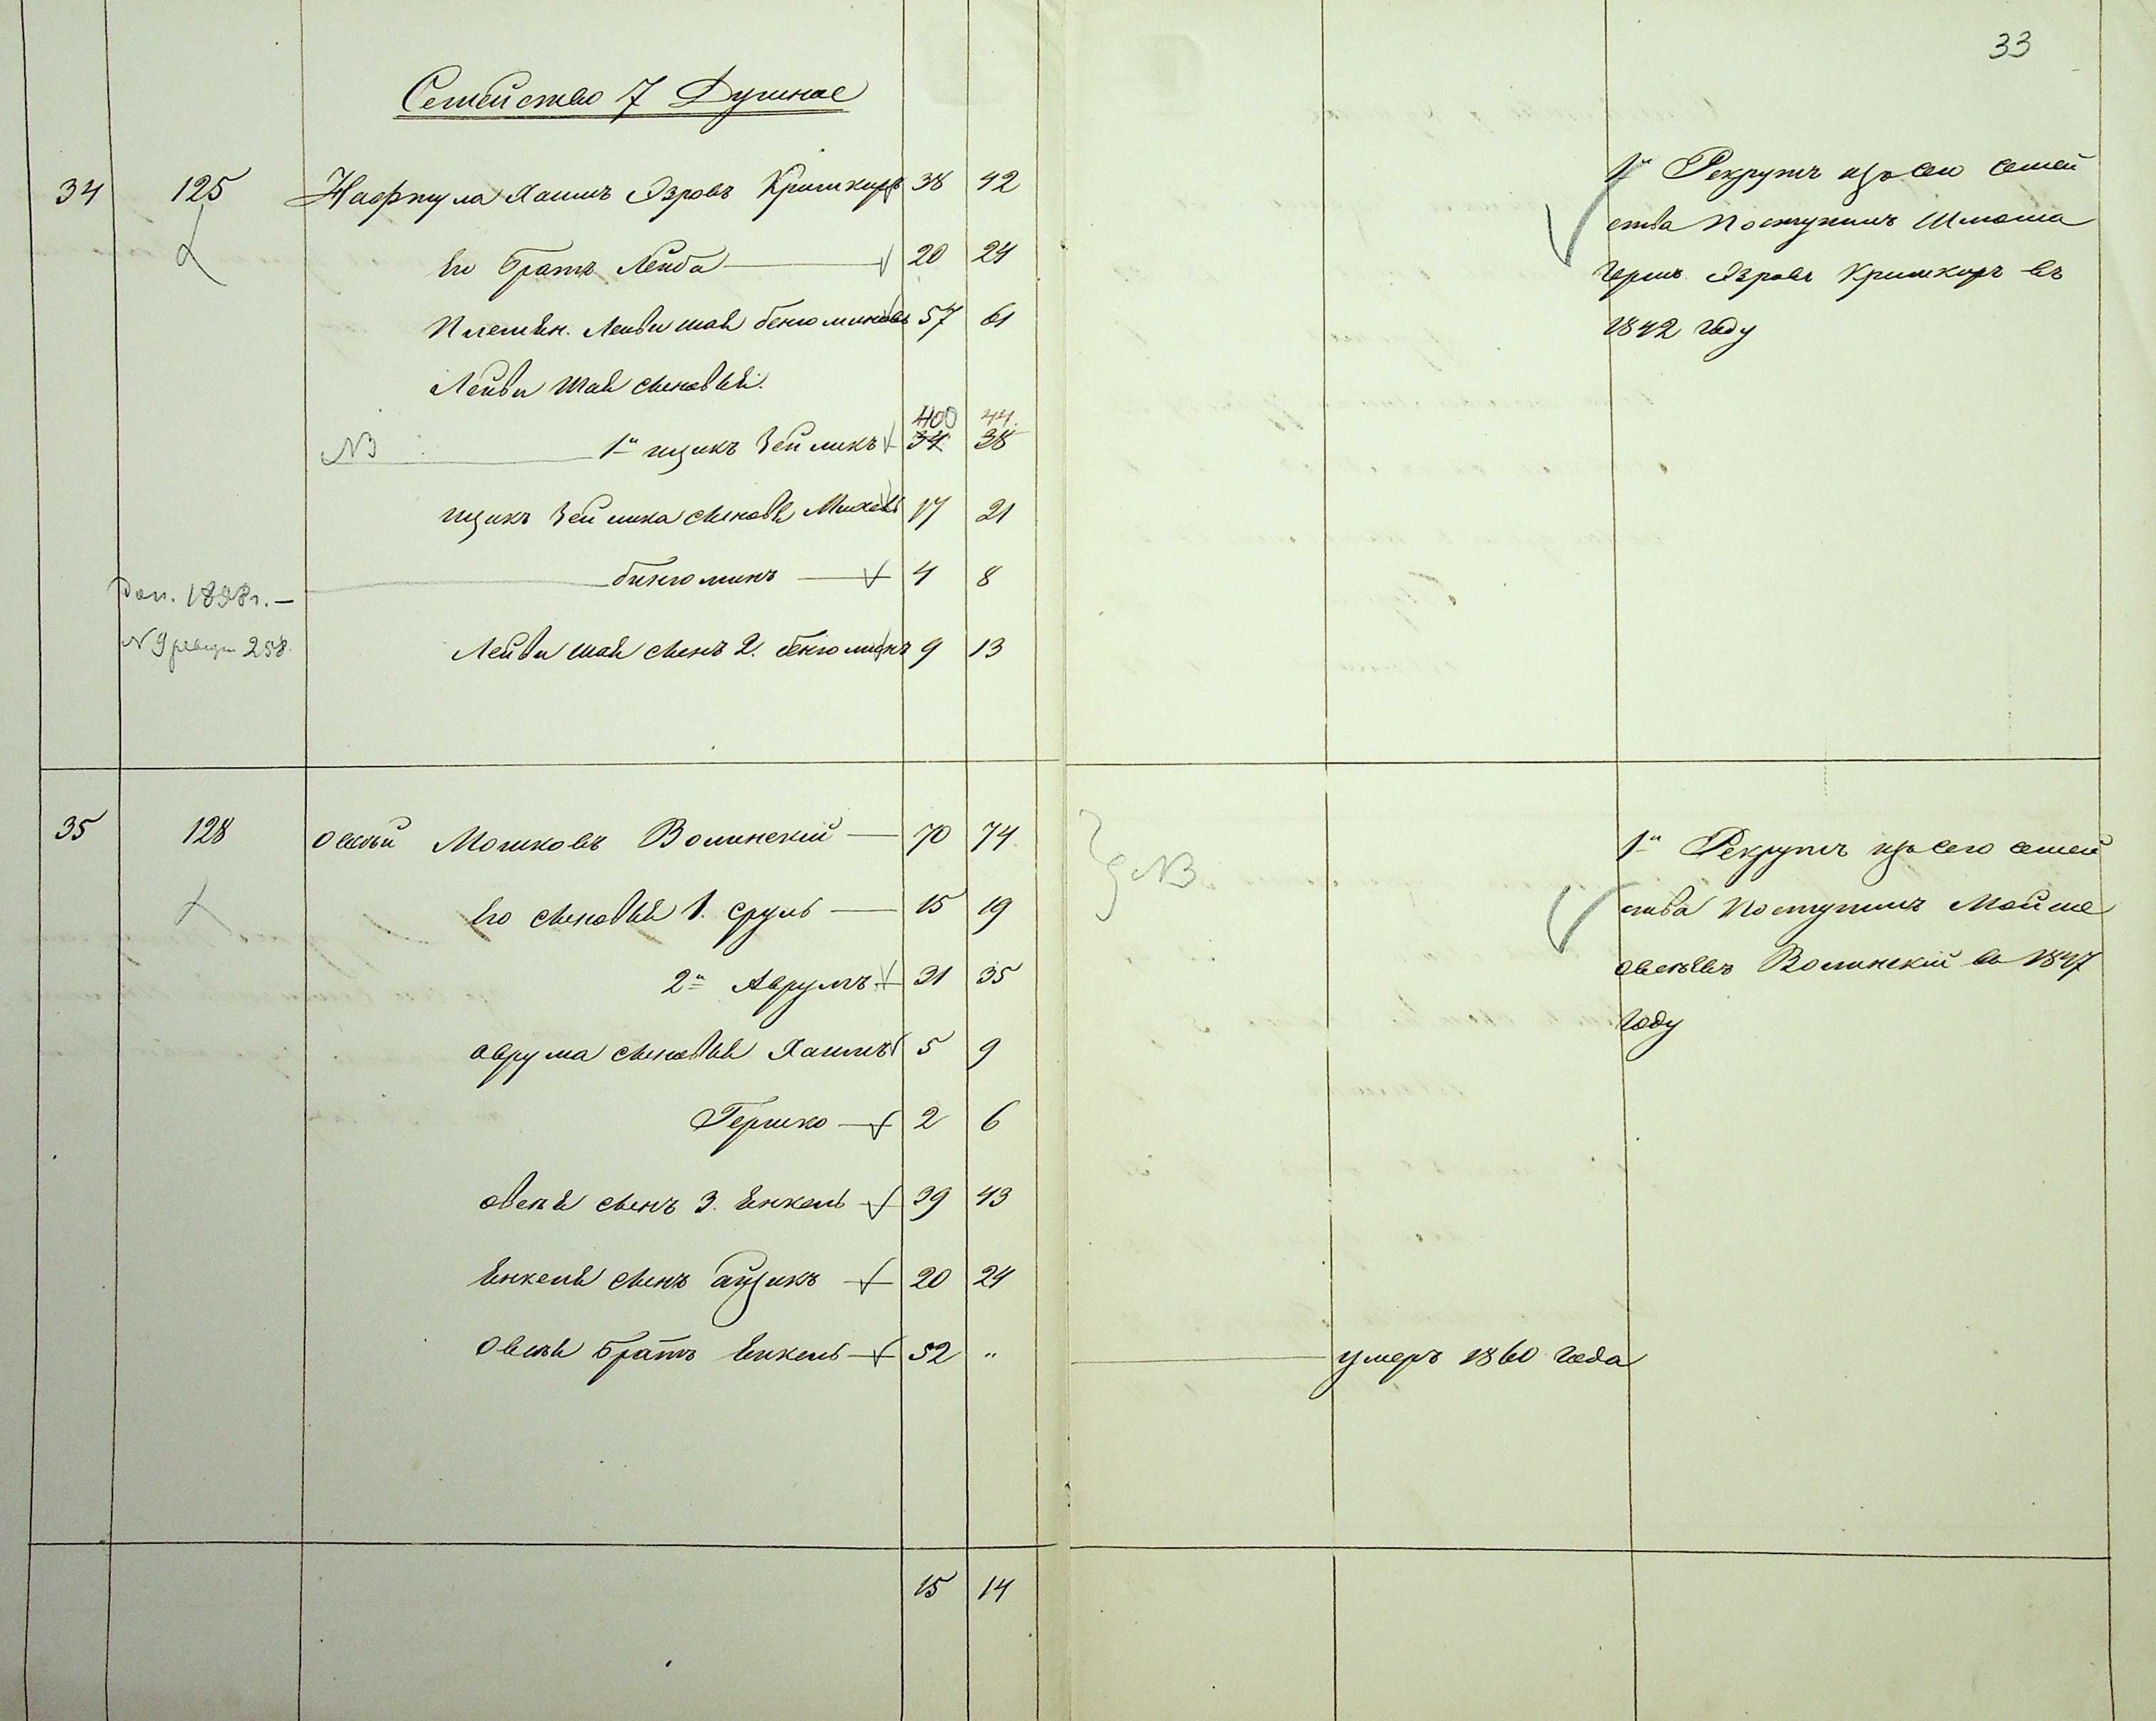 33
Семейство 7 Душное
34 125 Нафтула Хаимъ Эзровъ Кришкоръ 38 42
Его братъ Лейба 20 24
Племян. Лейви Шая Бенюминовъ 57 61
Лейви Шаи сыновья.
40 44
NB 1й Ицикъ Зейликъ 34 38
Ицикъ Зейлика сыновья Михель 17 21
Бенюминъ 4 8
Доп. 1858 г. –
N 9 ревиз 258.
Лейви Шаи сынъ 2. Бенюминъ 9 13
1й Рекрутъ изъ сего семей
ства поступилъ Шмома
Герш Эзровъ Кришкоръ въ
1842 году
35 128 Овсей Мошковъ Волинскій 70 74
Его сыновья 1. Сруль 15 19
2й Аврумъ 31 35
Аврума сыновья Хаимъ 5 9
Гершко 2 6
Овсея сынъ 3. Енкель 39 43
Енкеля сынъ Айзикъ 20 24
Овсея братъ Енкель 52 "
NB
умеръ 1860 года
1й Рекрутъ изъ сего семей
ства поступилъ Мойше
Овсеевъ Волинскій въ 1847
году
15 14